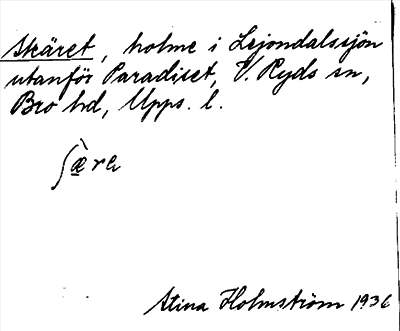 Skäret, holme i Lejondalssjön
utanför Paradiset, V. Ryds sn,
Bro hd, Upps. l.
ʃæ̀re
Stina Holmström 1936